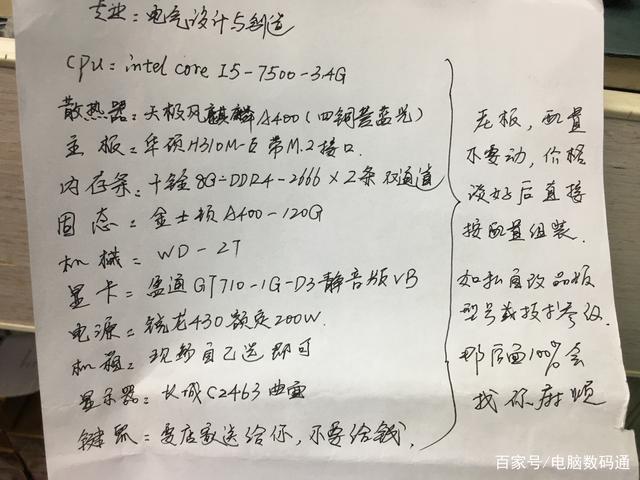 专业：电气设计与制造
CPU：intel core I5-7500-3.4G
散热器：大极风麒麟A400（四铜管蓝光）
主板：华硕H310M-E 带M.2接口.
内存条：十铨8G-DDR4-2666×2条 双通道
固态：金士顿A400-120G
机械：WD-2T
显卡：盈通GT710-1G-D3静音版VB
电源：钱老430额定200W.
机箱：现场自己选即可
显示器：长城C2463曲面
键鼠：要店家送给你，不要给钱.
老板，配置
不要动，价格
谈好后直接
按配置组装.
如私自改品版
型号或技术参数.
那店面100%会
找你麻烦
百家号/电脑数码通